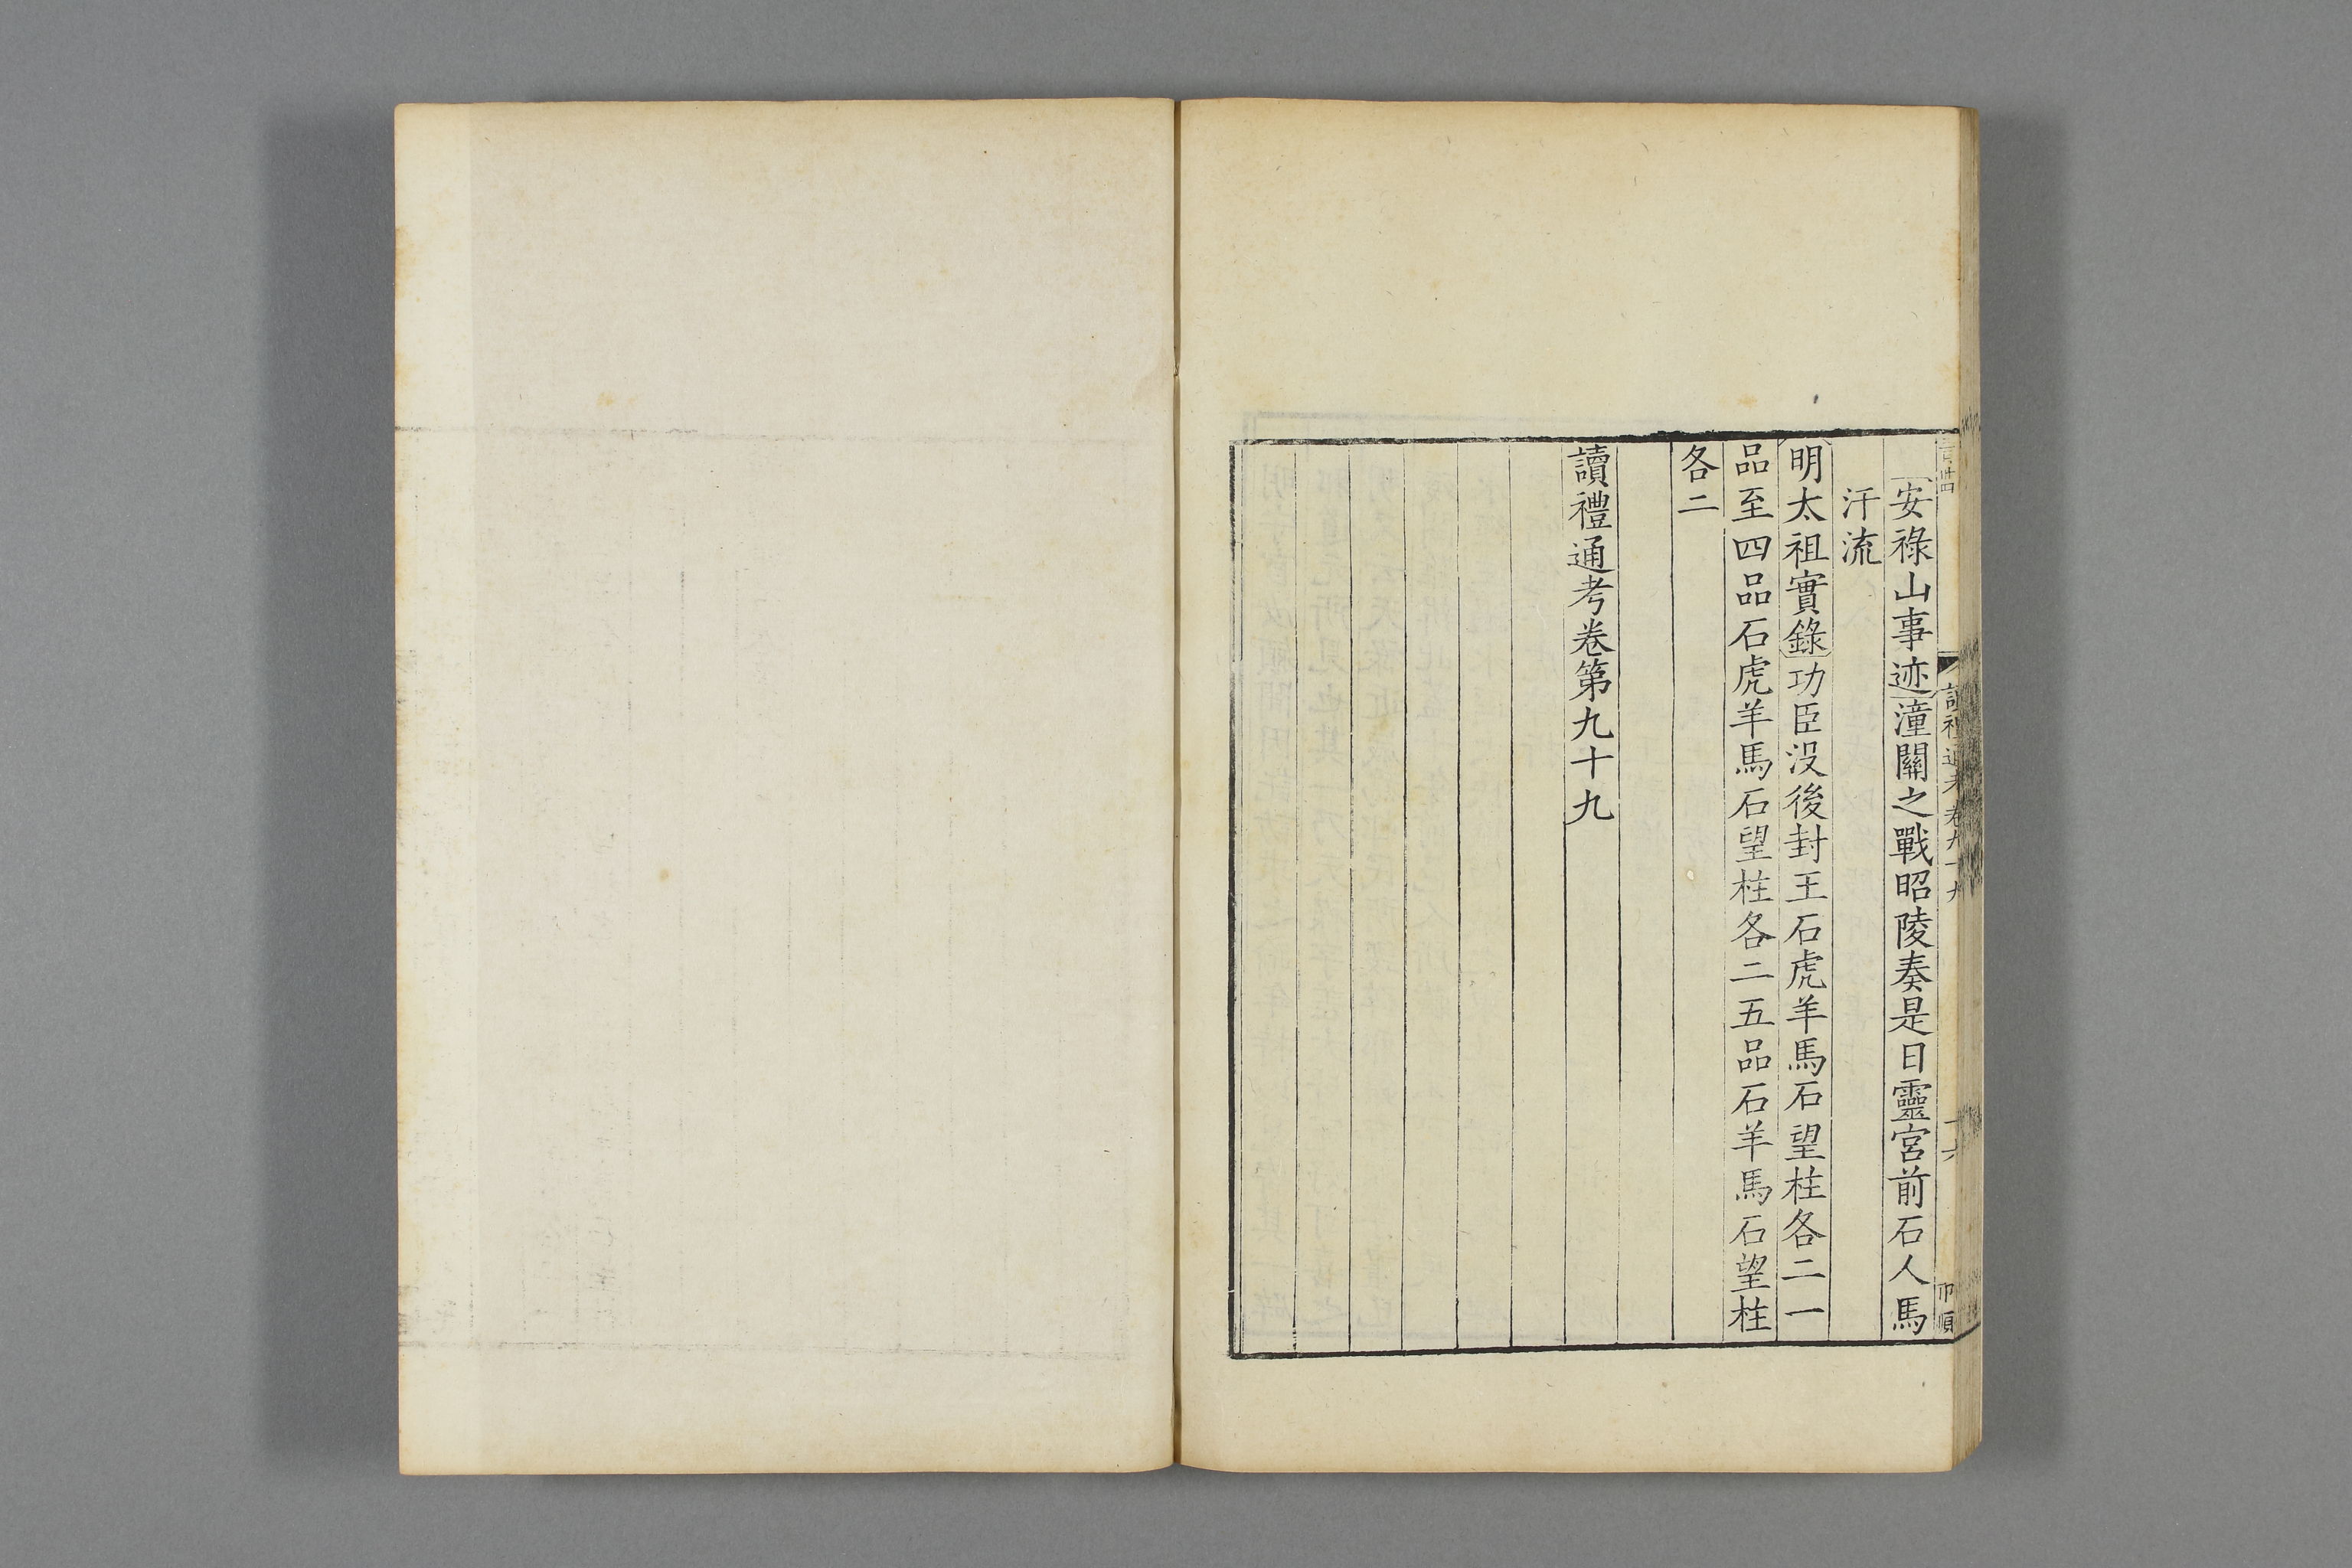 安祿山事迹潼關之戰昭陵奏是日靈宮前石人馬
汗流
明太祖實錄功臣没後封王石虎羊馬石望柱各二一
品至四品石虎羊馬石望柱各二五品石羊馬石望柱
各二
讀禮通考卷第九十九